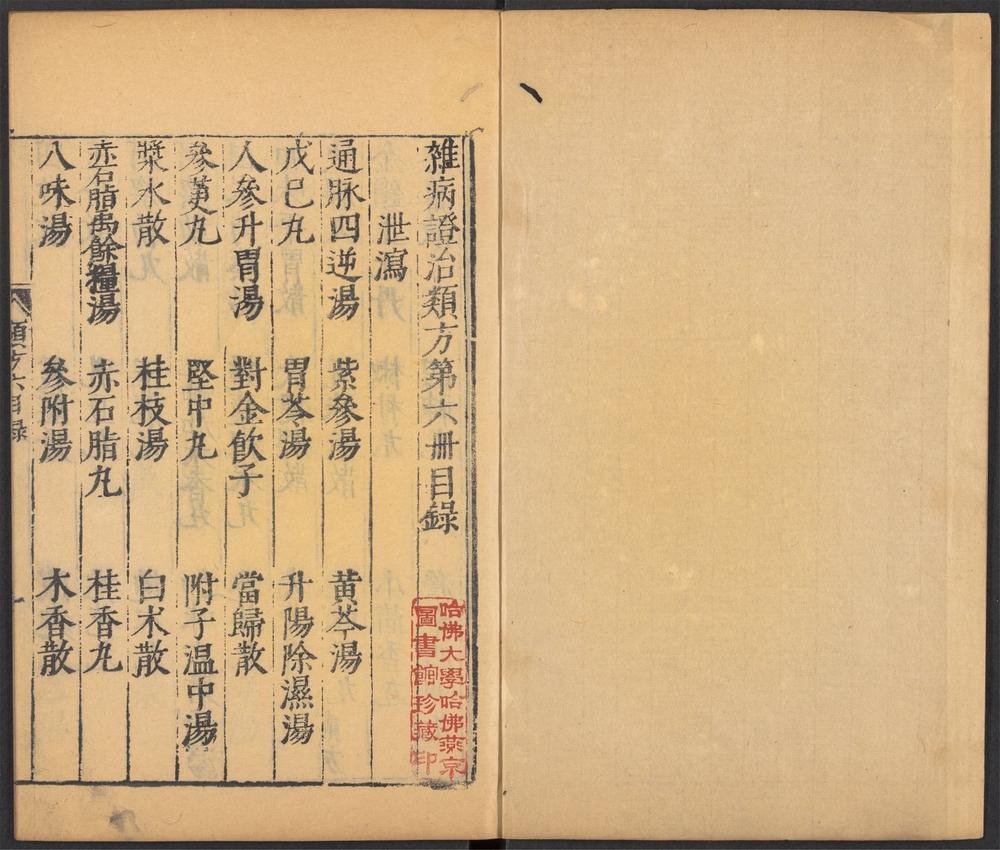 雜病證治類方第六冊目錄
泄瀉
通脉四逆湯 紫參湯 黄芩湯
戊巳丸 胃苓湯 升陽除濕湯
人參升胃湯 對金飲子 當歸散
參萸丸 堅中丸 附子温中湯
漿水散 桂枝湯 白术散
赤石脂禹餘糧湯 赤石脂丸 桂香丸
八味湯 參附湯 木香散
類方六目錄 一
哈佛大學哈佛燕京
圖書館珍藏印